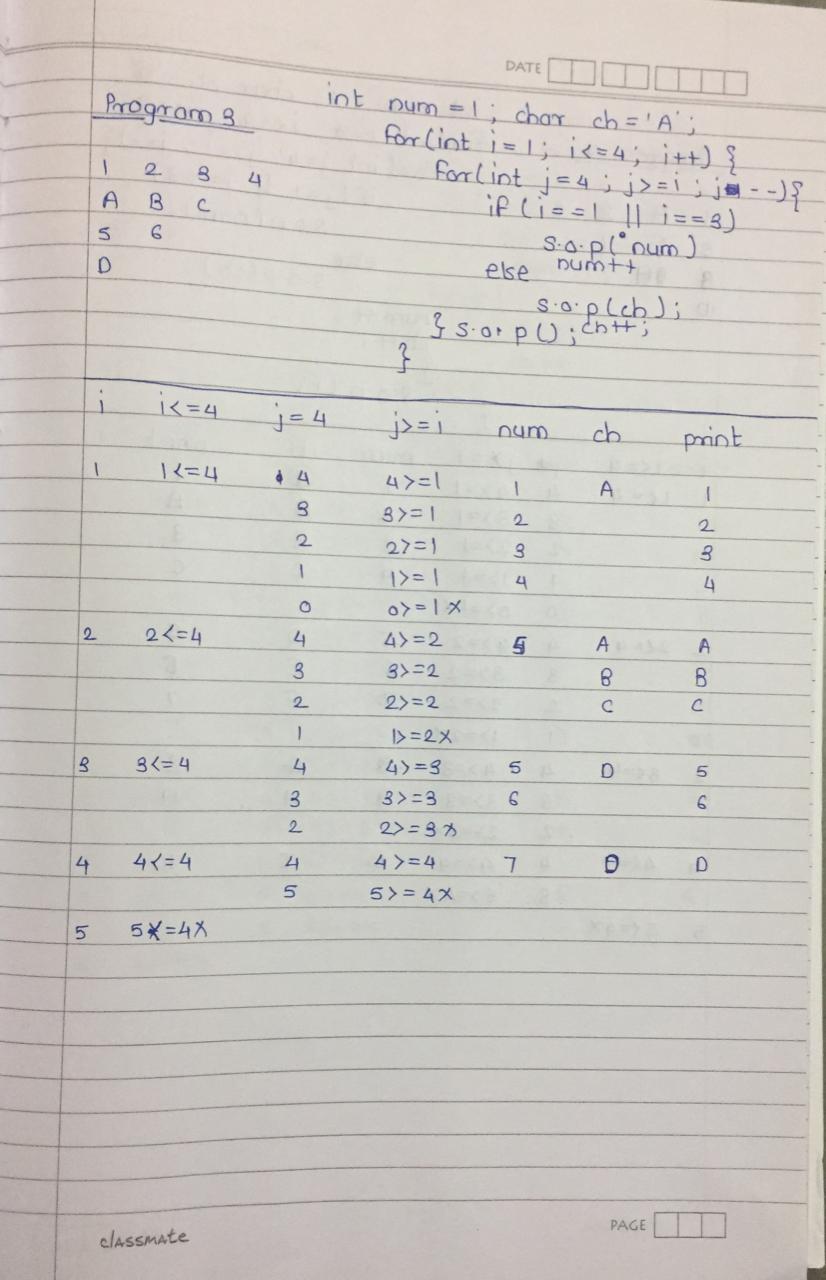 DATE
Program 3
int num = 1; char ch = 'A';
for(int i = 1; i<=4; i++) {
1 2 3 4
for(int j=4; j>=i; j--){
A B C
if (i==1 || i==3)
5 6
s.o.p(num)
D
else num++
s.o.p(ch);
} s.o.p(); ch++;
}
i i<=4 j=4 j>=i num ch print
1 1<=4 4 4>=1 1 A 1
3 3>=1 2 2
2 2>=1 3 3
1 1>=1 4 4
0 0>=1 x
2 2<=4 4 4>=2 5 A A
3 3>=2 B B
2 2>=2 C C
1 1>=2 x
3 3<=4 4 4>=3 5 D 5
3 3>=3 6 6
2 2>=3 x
4 4<=4 4 4>=4 7 D D
5 5>=4 x
5 5<=4 x
classmate
PAGE